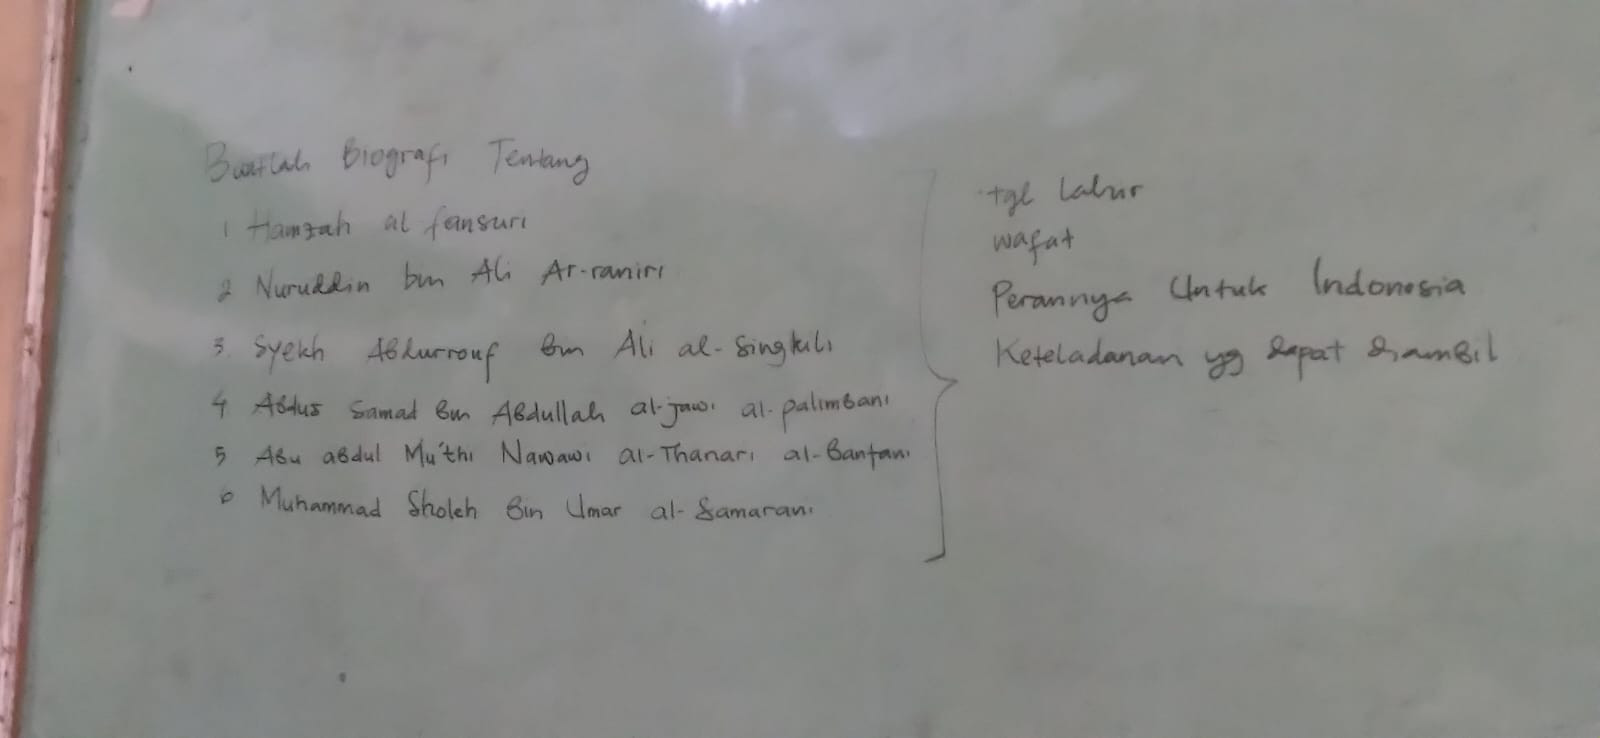 Buatlah Biografi Tentang
1 Hamzah al fansuri
2 Nuruddin bin Ali Ar-raniri
3. Syekh Abdurrouf bin Ali al-Singkili
4 Abdus Samad bin Abdullah al-jawi al-palimbani
5 Abu abdul Mu'thi Nawawi al-Thanari al-Bantani
6 Muhammad Sholeh Bin Umar al-Samarani
tgl Lahir
wafat
Perannya Untuk Indonesia
Keteladanan yg dapat diambil